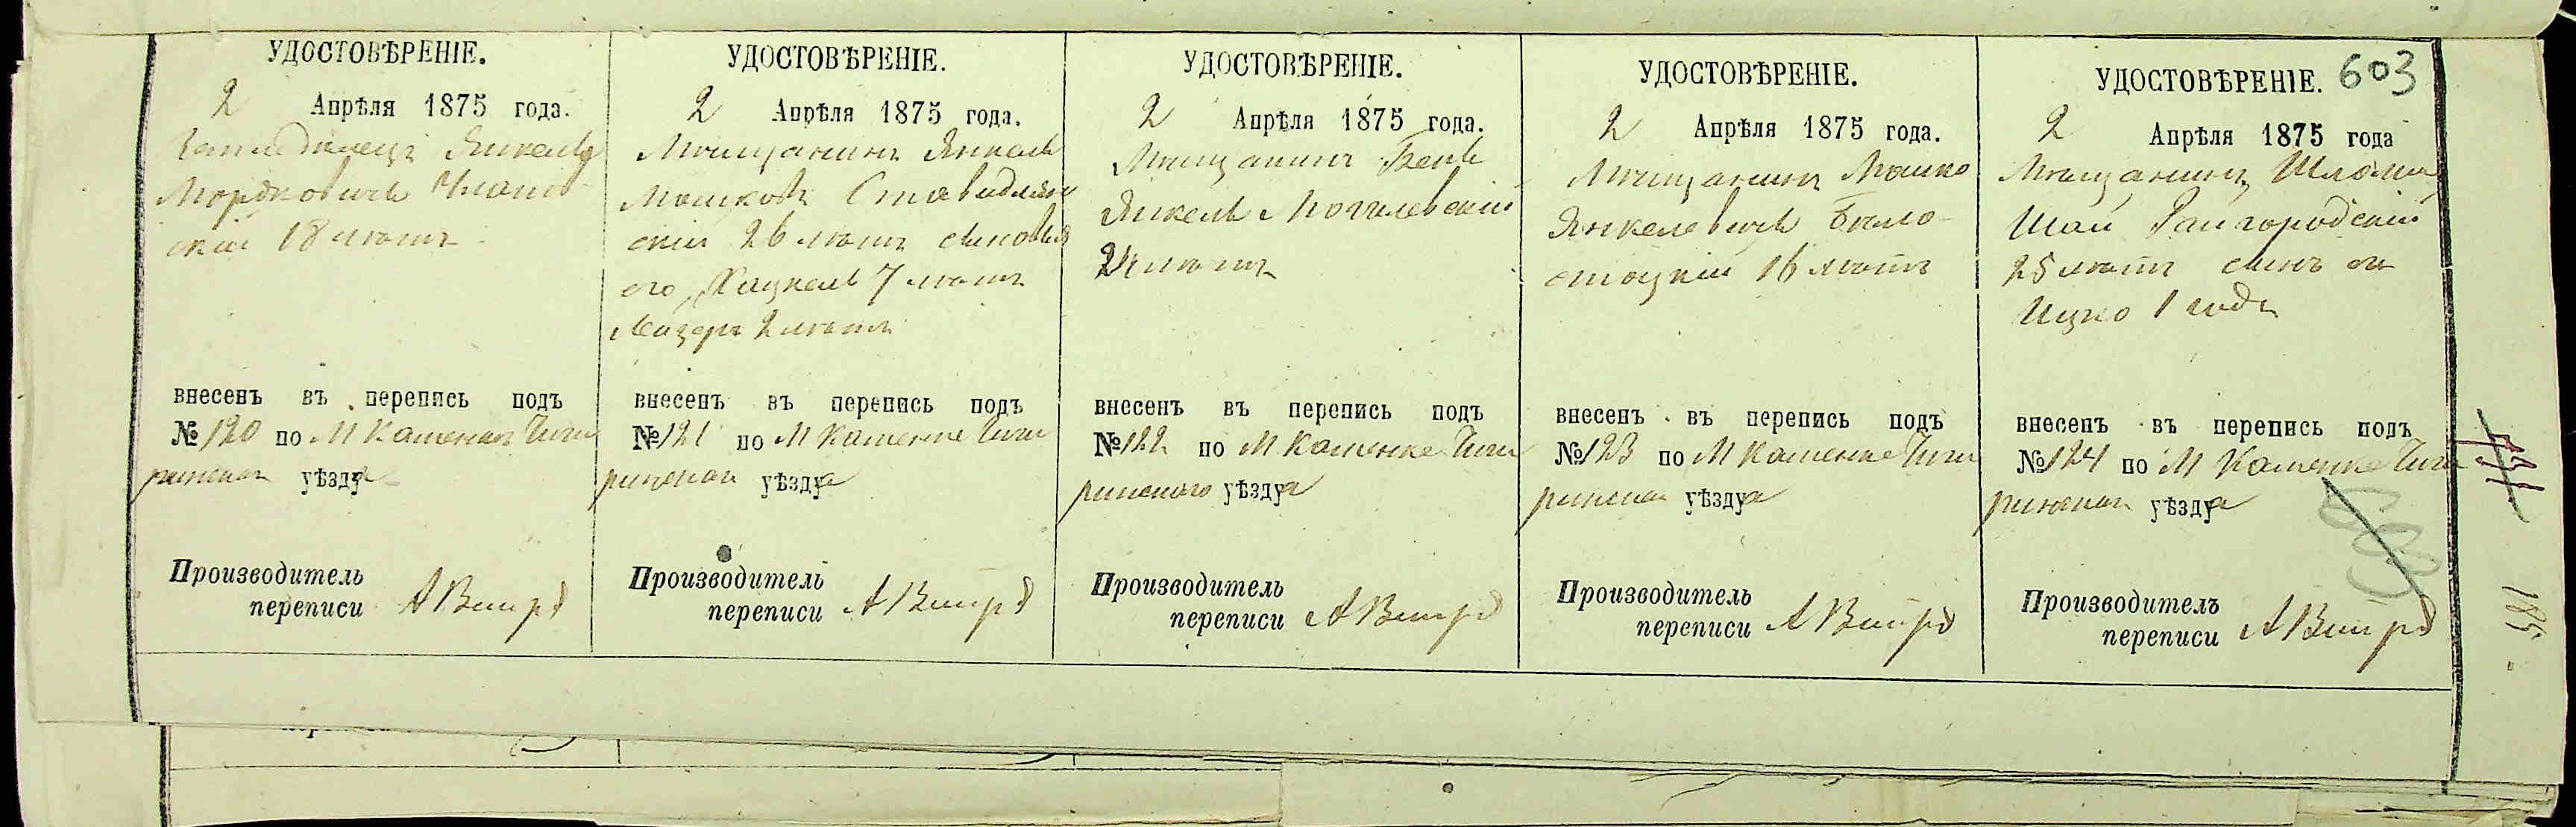 603
УДОСТОВѢРЕНІЕ.
2 Апрѣля 1875 года.
Земледѣлецъ Янкель
Мордковичъ
скій 18 лѣтъ
внесенъ въ перепись подъ
№ 120 по М Каменкѣ Чиги
ринскаго уѣзда
Производитель
переписи
УДОСТОВѢРЕНІЕ.
2 Апрѣля 1875 года.
Мѣщанинъ Янкель
Мошковъ Ставидлян
скій 26 лѣтъ сыновья
его, Хацкель 7 лѣтъ
Лейзеръ 2 лѣтъ
внесенъ въ перепись подъ
№ 121 по М Каменке Чиги
ринскаго уѣзда
Производитель
переписи
УДОСТОВѢРЕНІЕ.
2 Апрѣля 1875 года.
Мѣщанинъ Беръ
Янкель Могилевскій
24 лѣтъ
внесенъ въ перепись подъ
№ 122 по М Каменке Чиги
ринскаго уѣзда
Производитель
переписи
УДОСТОВѢРЕНІЕ.
2 Апрѣля 1875 года.
Мѣщанинъ Мошко
Янкелевичъ Бѣло-
стоцкій 16 лѣтъ
внесенъ въ перепись подъ
№ 123 по М Каменке Чиги
ринскаго уѣзда
Производитель
переписи
УДОСТОВѢРЕНІЕ.
2 Апрѣля 1875 года
Мѣщанинъ Шлома
Шаи Райгородскій
25 лѣтъ сынъ его
Ицко 1 года
внесенъ въ перепись подъ
№ 124 по М Каменке Чиги
ринскаго уѣзда
Производитель
переписи